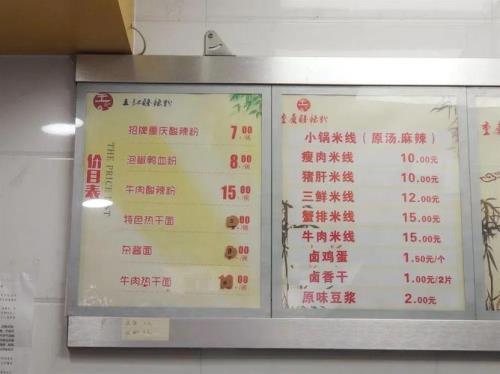 价目表
THE PRICE LIST
招牌重庆酸辣粉 7.00
泡椒鸭血粉 8.00
牛肉酸辣粉 15.00
特色热干面
杂酱面
牛肉热干面
小锅米线（原汤.麻辣）
瘦肉米线 10.00元
猪肝米线 10.00元
三鲜米线 12.00元
蟹排米线 15.00元
牛肉米线 15.00元
卤鸡蛋 1.50元/个
卤香干 1.00元/2片
原味豆浆 2.00元